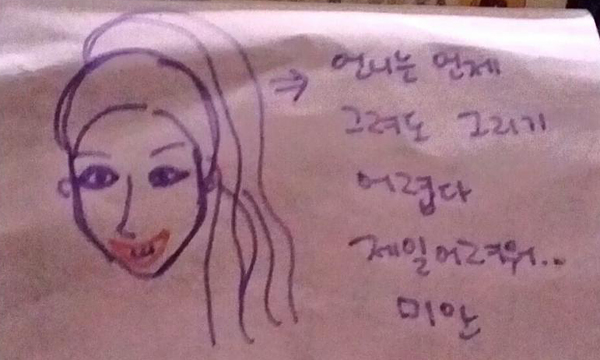 언니는 언제
그려도 그리기
어렵다
제일어려워..
미안